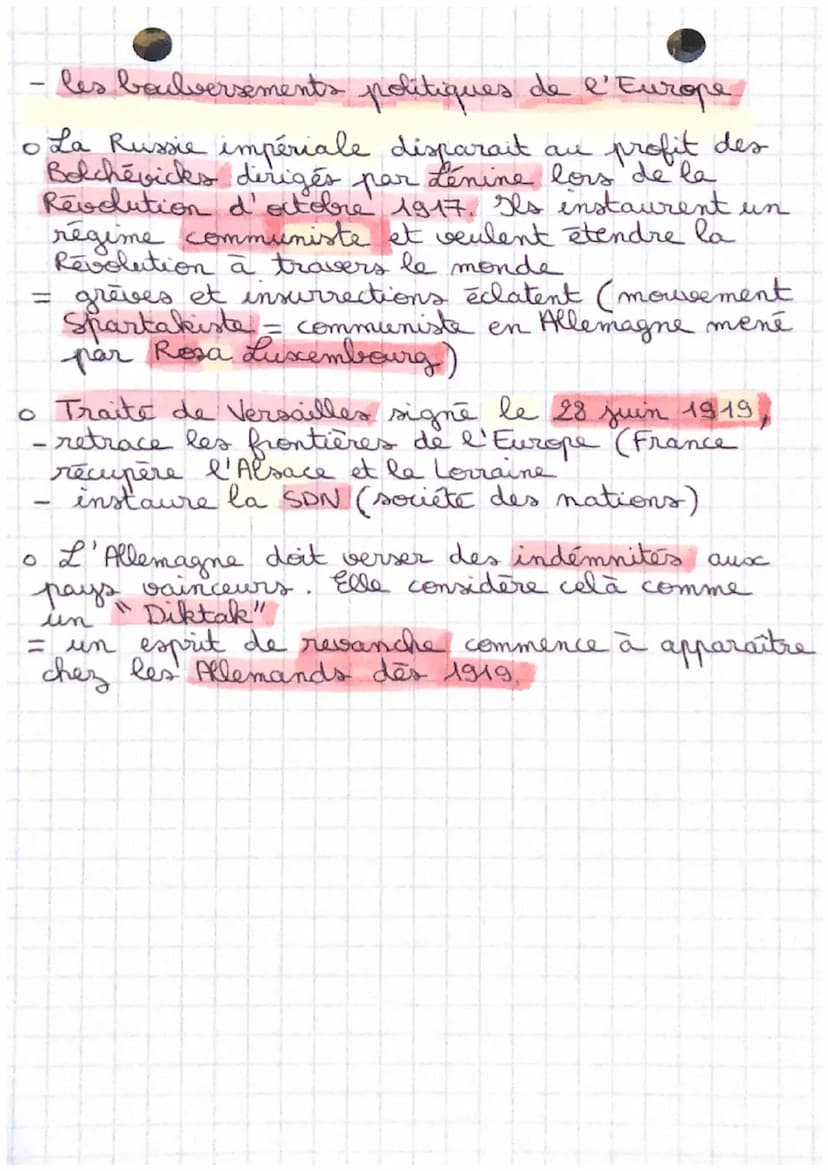 - les boulversements politiques de l'Europe
o La Russie impériale disparait au profit des
Bolchévicks dirigés par Lénine lors de la
Révolution d'octobre 1917. Ils instaurent un
régime communiste et veulent étendre la
Révolution à travers le monde
= grèves et insurrections éclatent (mouvement
Spartakiste = communiste en Allemagne mené
par Rosa Luxembourg)
o Traité de Versailles signé le 28 juin 1919,
- retrace les frontières de l'Europe (France
récupère l'Alsace et la Lorraine
- instaure la SDN (société des nations)
o L'Allemagne doit verser des indémnités aux
pays vainceurs. Elle considère celà comme
un "Diktak"
= un esprit de revanche commence à apparaître
chez les Allemands dès 1919.